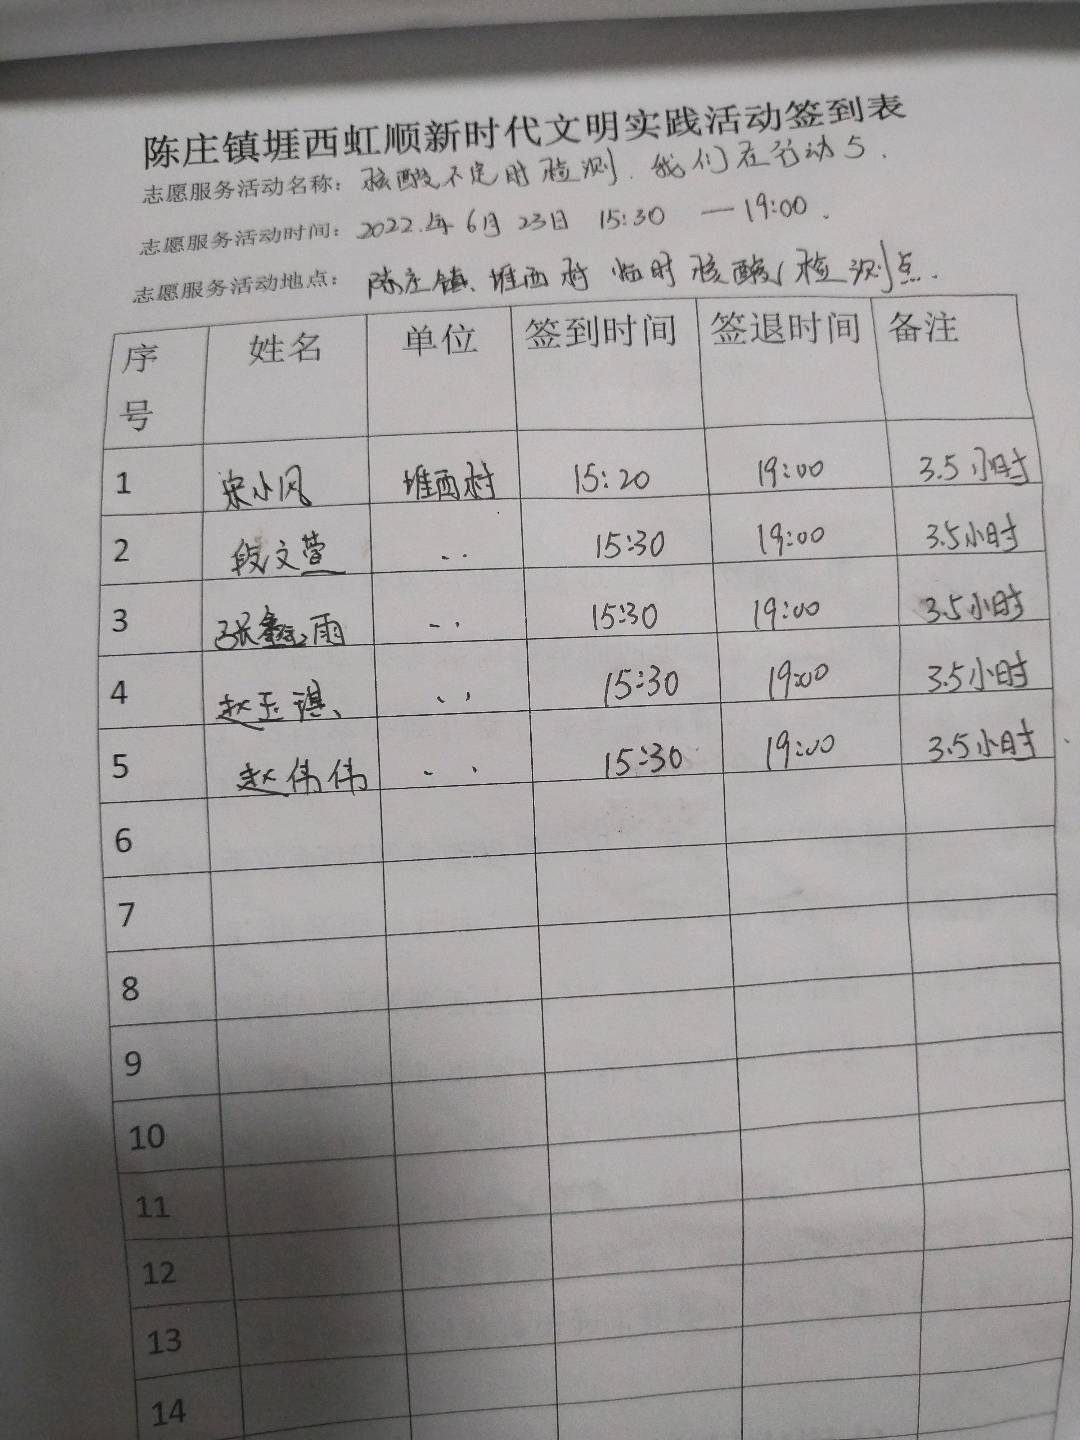 陈庄镇堐西虹顺新时代文明实践活动签到表
志愿服务活动名称：核酸不定时检测.我们在行动5.
志愿服务活动时间：2022.年6月23日 15:30 —19:00.
志愿服务活动地点：陈庄镇.堐西村临时核酸检测点.
序号 姓名 单位 签到时间 签退时间 备注
1 宋小风 堐西村 15:20 19:00 3.5小时
2 段文萱 .. 15:30 19:00 3.5小时
3 张鑫雨 .. 15:30 19:00 3.5小时
4 赵玉琪 .. 15:30 19:00 3.5小时
5 赵伟伟 .. 15:30 19:00 3.5小时
6
7
8
9
10
11
12
13
14